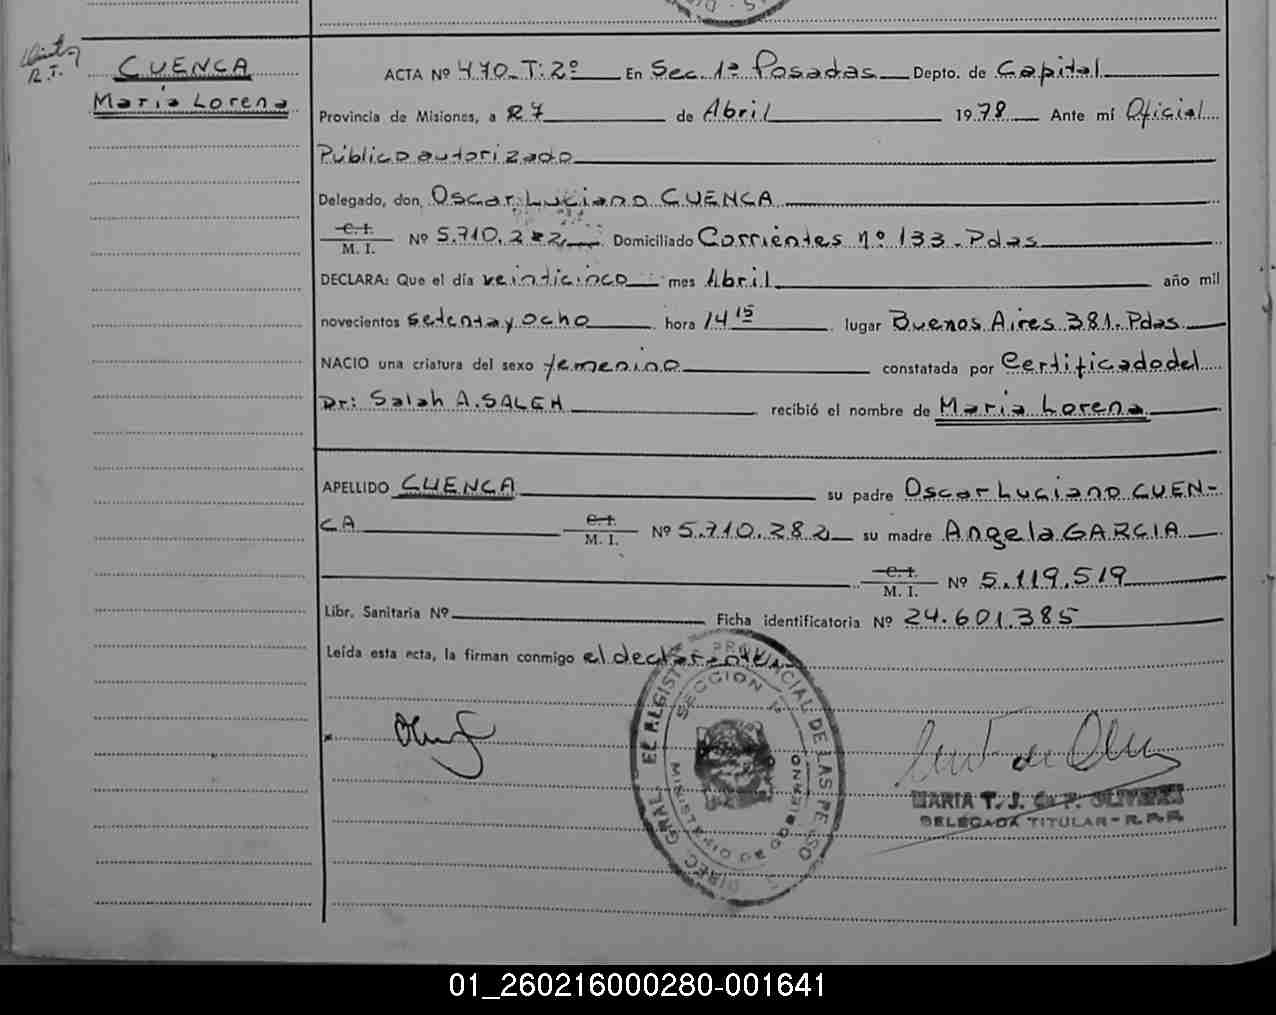 CUENCA
María Lorena
ACTA Nº 470-T:2º En Sec. 1ª Posadas Depto. de Capital
Provincia de Misiones, a 27 de Abril 1978 Ante mí Oficial
Público autorizado
Delegado, don Oscar Luciano CUENCA
C. I.
M. I. Nº 5.710.282 Domiciliado Corrientes nº 133-Pdas
DECLARA: Que el día veinticinco mes Abril año mil
novecientos setenta y ocho hora 14 15 lugar Buenos Aires 381-Pdas
NACIO una criatura del sexo femenino constatada por Certificado del
Dr: Salah A. SALEH recibió el nombre de María Lorena
APELLIDO CUENCA su padre Oscar Luciano CUEN-
CA C. I. M. I. Nº 5.710.282 su madre Angela GARCIA
C. I. M. I. Nº 5.119.519
Libr. Sanitaria Nº Ficha identificatoria Nº 24.601.385
Leída esta acta, la firman conmigo el declarante
DIREC. GRAL. EL REGISTRO PROVINCIAL DE LAS PERSO
SECCION 1ª
MINISTERIO DE GOBIERNO
MARIA T. J. de P. OLIVERA
DELEGADA TITULAR - R.P.P.
01_260216000280-001641